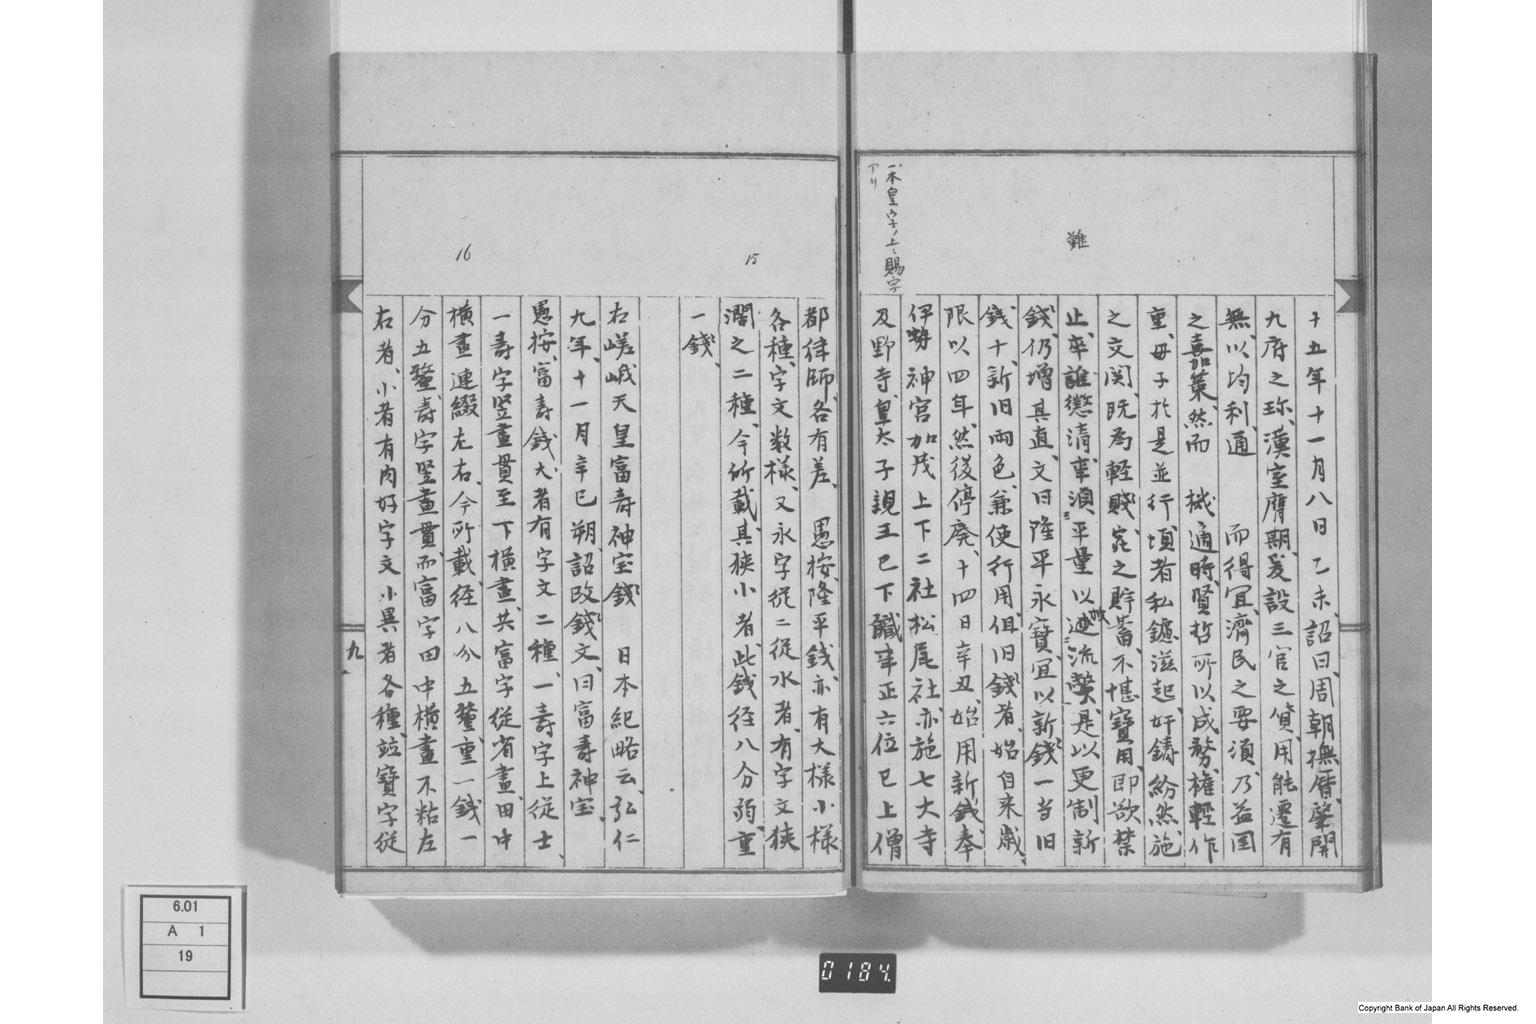 難
一本皇字ノ上ニ賜字
アリ
十五年十一月八日乙未、詔曰、周朝撫曆、肇開
九府之珍、漢室膺期、爰設三官之貨、用能遷有
無、以均利通 而得冝、濟民之要須、乃益国
之嘉策、然而 機通時、賢哲所以成務、権軽作
重、母子於是並行、頃者私鑪滋起、奸鋳紛然、施
之交関、既為軽賤、㝡之貯蓄、不堪寶用、即欲禁
止、卒誰懲清、事須平量以遏流弊、是以更制新
錢、仍増其直、文曰隆平永寶、冝以新錢一当旧
錢十、新旧両色、兼使行用、但旧錢者、始自来歳、
限以四年、然後停廃、十四日辛丑、始用新錢、奉
伊勢神宮加茂上下二社松尾社、亦施七大寺
及野寺、皇太子親王已下職事正六位已上僧
15
16
都律師、各有差、 愚按、隆平錢、亦有大様小様
各種、字文数様、又永字従二従水者、有字文狭
濶之二種、今所載、其狭小者、此錢径八分弱、重
一錢、
右嵯峨天皇富寿神宝錢 日本紀略云、弘仁
九年、十一月辛巳朔詔改錢文、曰富寿神宝、
愚按、富寿錢、大者有字文二種、一寿字上従士、
一寿字竖畫貫至下横畫、共富字従省畫、田中
横畫連綴左右、今所載、径八分五釐、重一錢一
分五釐、寿字竖畫貫、而富字田中横畫不粘左
右者、小者有肉好字文小異者各種、竝寶字従
九
6.01
A 1
19
0184.
Copyright Bank of Japan All Rights Reserved.